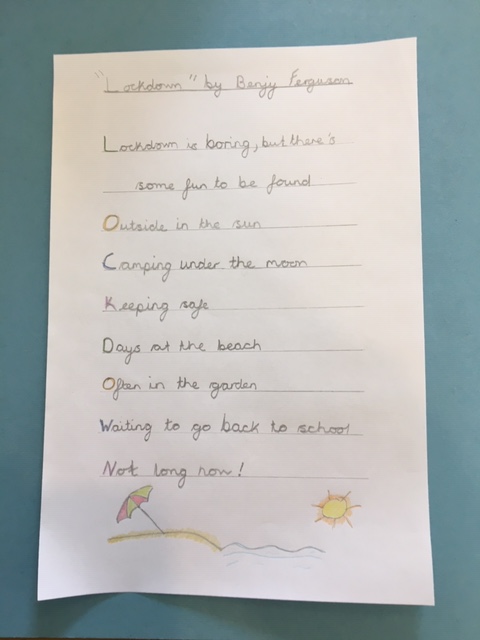 "Lockdown" by Benjy Ferguson
Lockdown is boring, but there's
some fun to be found
Outside in the sun
Camping under the moon
Keeping safe
Days at the beach
Often in the garden
Waiting to go back to school
Not long now!